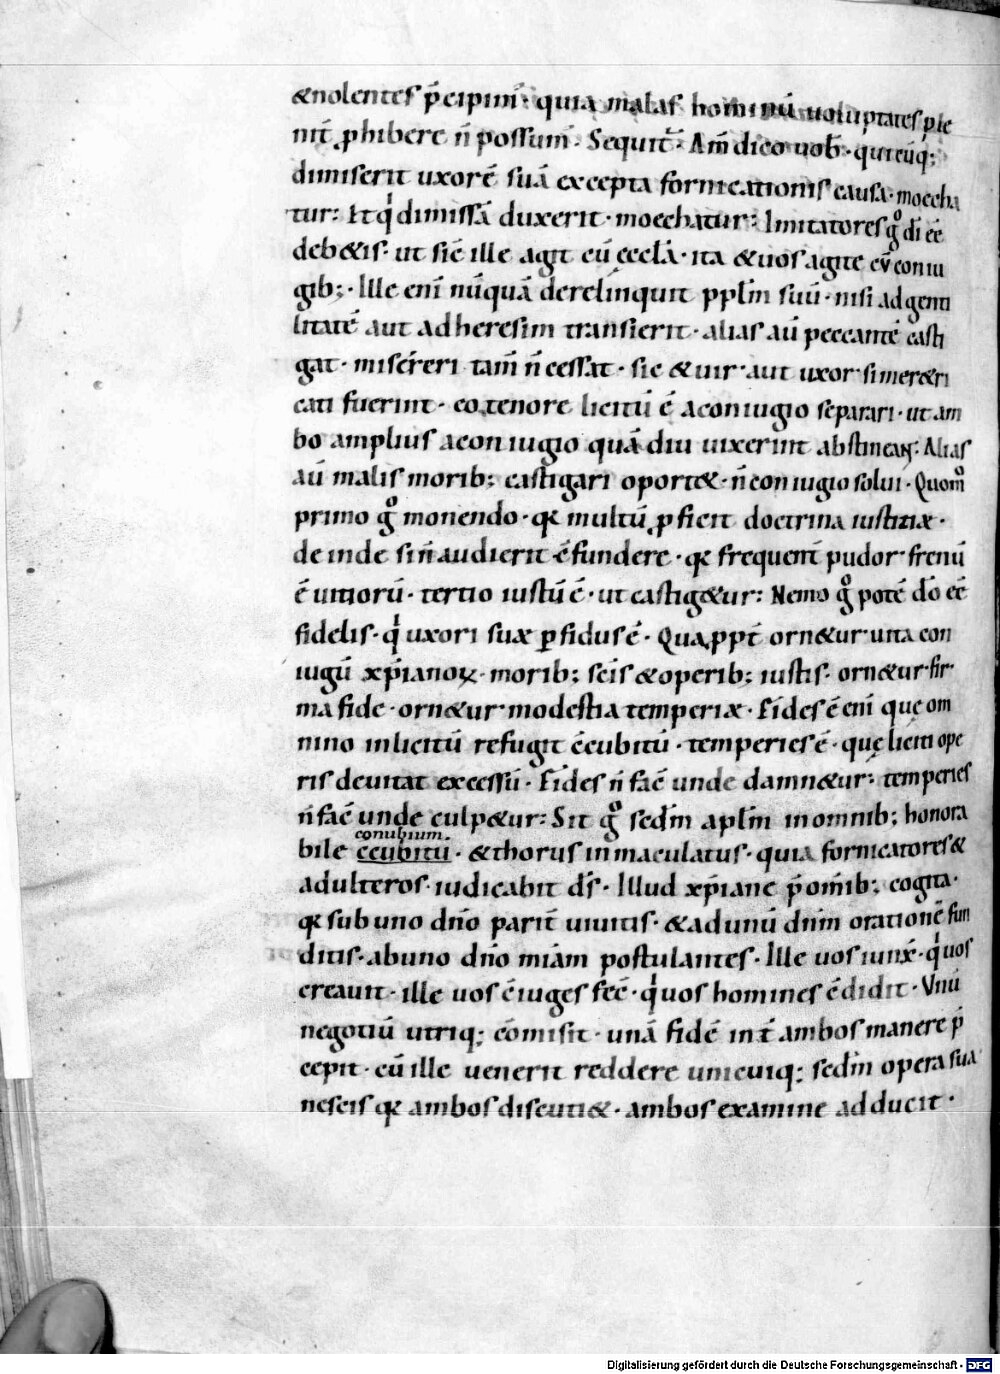 &nolentes p̄cipim̄· quia malas hominū uoluptates ple
nit̄ ꝓhibere n̄ possum̄· Sequit᷒· Am̄ dico uob̄· quicūq;
dimiserit uxorē suā excepta fornicationis causa· moecha
tur: Et qͥ dimissā duxerit· moechatur: Imitatores gͦ di ēē
deb&is· ut sic̄ ille agit cū eccla̅· ita &uos agite cū coniu
gib;· Ille eni̅ nūquā derelinquit pplm̄ suū· nisi ad genti
litatē aut ad heresim transierit· alias aū peccantē casti
gat· misereri tam̄ n̄ cessat· sic &uir· aut uxor· si mer&ri
cati fuerint· eo tenore licitū ē a coniugio separari· ut am
bo amplius a coniugio quā diu uixerint abstineaꝵ: Alias
aū malis morib; castigari oport&· n̄ coniugio solui· Quom̊
primo gͦ monendo· qꝛ multū ꝓficit doctrina iustitiæ·
de inde si n̄ audierit c̄fundere· qꝛ frequent̄ pudor frenū
ē uitiorū· tertio iustū ē· ut castig&ur: Nemo gͦ potē do̅ ēē
fidelis· qͥ uxori suæ ꝑfidus ē· Qua ꝓpt̄ orn&ur uita con
iugū xp̄ianoꝝ· morib; sc̄is &operib; iustis· orn&ur fir
ma fide· orn&ur modestia temperiæ· Fides ē eni̅ quę om
nino inlicitū refugit c̄cubitū· temperies ē· quę liciti ope
ris deuitat excessū· Fides n̄ fac̄ unde damn&ur: temperies
n̄ fac̄ unde culp&ur: Sit gͦ sedm̄ aplm̄ in omnib; honora
conubium.
bile c̄cubitū· &thorus inmaculatus· quia fornicatores &
adulteros· iudicabit ds̄· Illud xp̄iane p̄ om̄ib; cogita·
qꝛ sub uno dn̄o parit̄ uiuitis· &ad unū dnm̄ orationē fun
ditis· ab uno dn̄o miā̄m postulantes· Ille uos iunx̄· qͥ uos
creauit· ille uos c̄iuges fec̄· qͥ uos homines c̄didit· Vnū
negotiū utriq; cōmisit· unā fidē int̄ ambos manere p̄
cepit· cū ille uenerit reddere unicuiq; sedm̄ opera sua
nescis qꝛ ambos discuti&· ambos examine adducit·
Digitalisierung gefördert durch die Deutsche Forschungsgemeinschaft · DFG